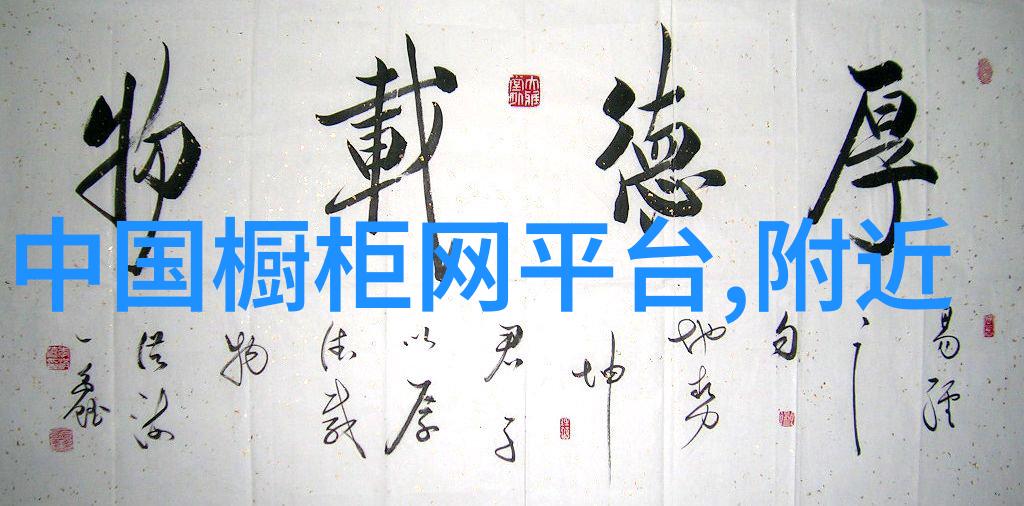 厚德載物
中国橱柜网平台,附近
易经
之
句
地势
坤
君子
以厚
德载
物